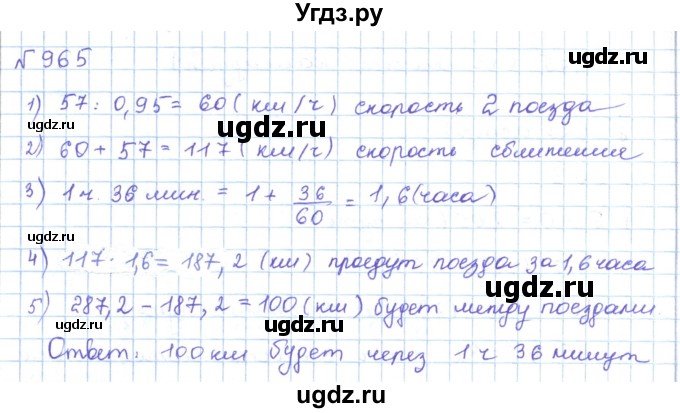 Угдз.ру
ugdz.ru
№965
1) 57 : 0,95 = 60 (км/ч) скорость 2 поезда
ugdz.ru ugdz.ru
2) 60 + 57 = 117 (км/ч) скорость сближения
3) 1 ч. 36 мин. = 1 + 36/60 = 1,6 (часа)
ugdz.ru ugdz.ru
4) 117 · 1,6 = 187,2 (км) проедут поезда за 1,6 часа
ugdz.ru
5) 287,2 – 187,2 = 100 (км) будет между поездами.
ugdz.ru
Ответ: 100 км будет через 1 ч 36 минут
ugdz.ru ugdz.ru